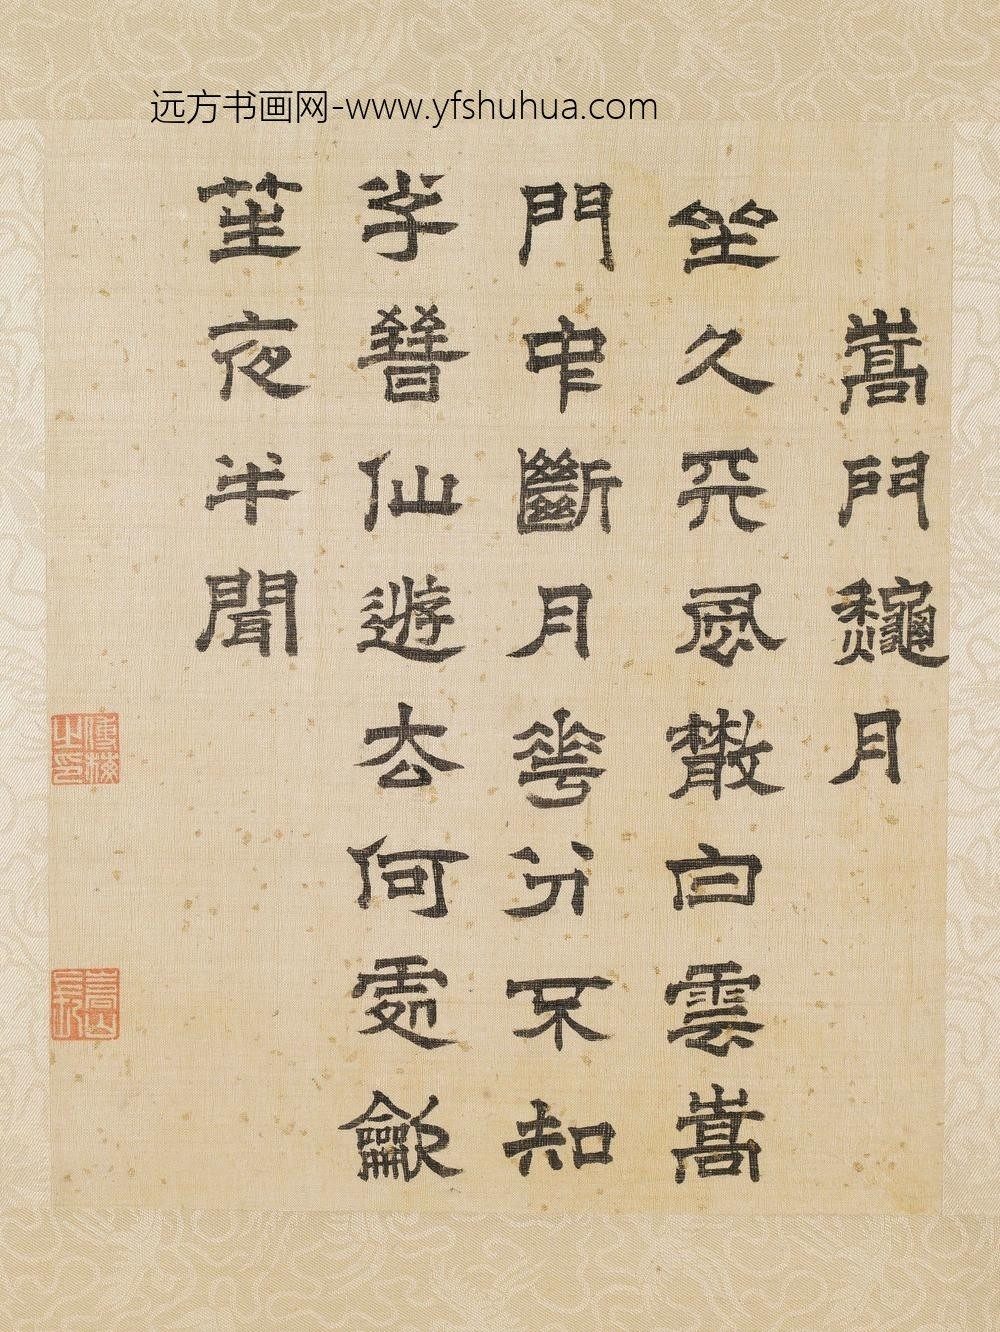 远方书画网-www.yfshuhua.com
嵩門龝月
坐久天風散白雲嵩
門中斷月華分不知
子晉仙遊去何處龡
笙夜半聞
傅梅之印